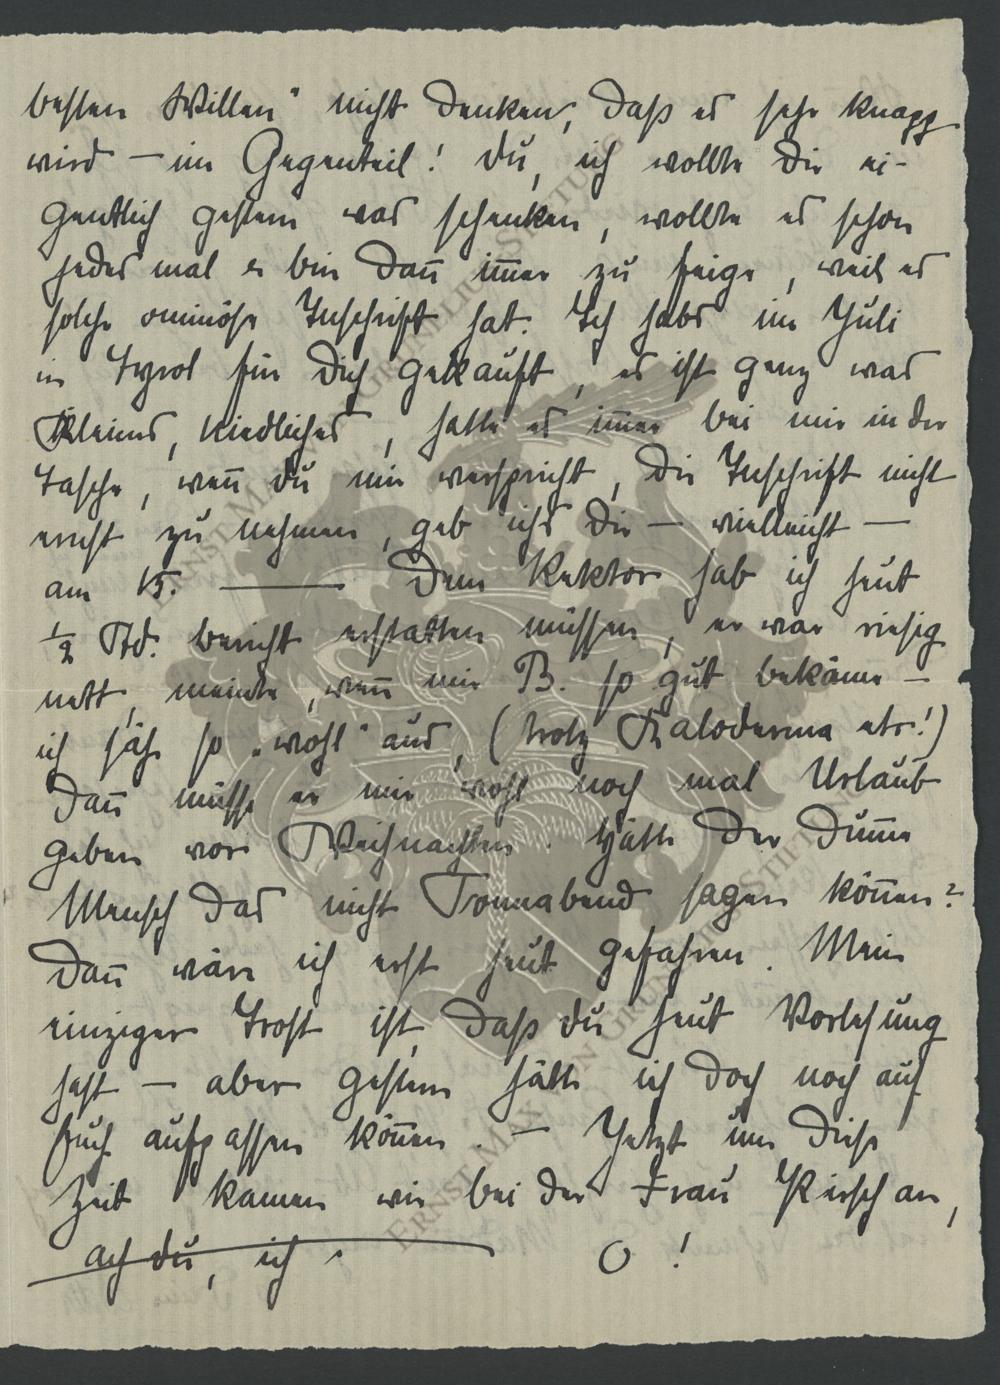 besten Willen" nicht denken, daß es sehr knapp
wird – im Gegenteil! Du, ich wollte Dir ei-
gentlich gestern was schenken, wollte es schon
jedes mal u bin dañ im̄er zu feige, weil es
solche ominöse Inschrift hat. Ich habs im Juli
in Tyrol für Dich gekauft, es ist ganz was
Kleines, Niedliches, hatte es im̄er bei mir in der
Tasche, weñ du mir versprichst, die Inschrift nicht
ernst zu nehmen, geb ichs Dir – vielleicht –
am 15. ——— Dem Rektor hab ich heut
½ Std. bericht erstatten müssen, er war riesig
nett, meinte, weñ mir B. so gut bekäme –
ich säh so „wohl" aus, (trotz Kaloderma etc!)
dañ müsse er mir wohl noch mal Urlaub
geben vor Weihnachten. Hätte der dum̄e
Mensch das nicht Sonnabend sagen köñen?
Dañ wäre ich erst heut gefahren. Mein
einziger Trost ist, daß du heut Vorlesung
hast – aber gestern hätte ich doch noch auf
Euch aufpassen köñen. – Jetzt um diese
Zeit kamen wir bei der Frau Kirsch an,
ach du, ich O!
ERNST MAY EN GURLITT STIFTUNG
ERNST MAY EN GURLITT STIFTUNG